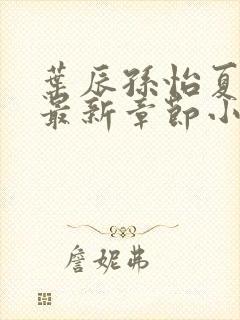 葉辰孫怡夏
最新章節小
詹妮弗